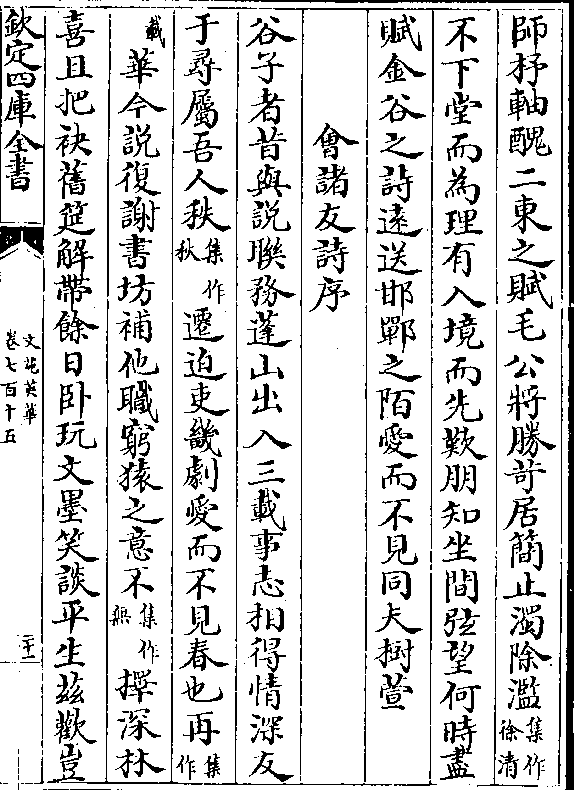 師杼軸醜二東之賦毛公將勝苛居簡止濁除濫集作徐清
不下堂而為理有入境而先歎朋知坐間弦望何時盡
賦金谷之詩遠送邯鄲之陌愛而不見同夫樹萱
會諸友詩序
谷子者昔與說聯務蓬山出入三載事志相得情深友
于尋屬吾人秩集作秋遷迫吏畿劇愛而不見春也再集作
載華今說復謝書坊補他職窮猿之意不集作無擇深林
喜且把袂舊筵解帶餘日卧玩文墨笑談平生兹歡豈
欽定四庫全書
文苑英華
卷七百十五
二十一